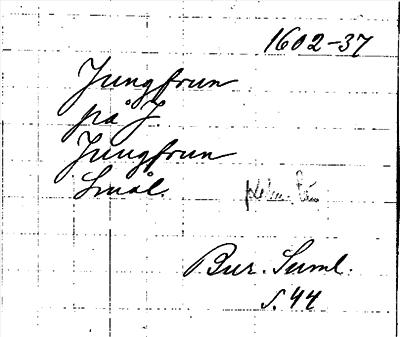 1602-37
Jungfrun
på J.
Jungfrun
Smål.
Bur. Suml.
s. 44